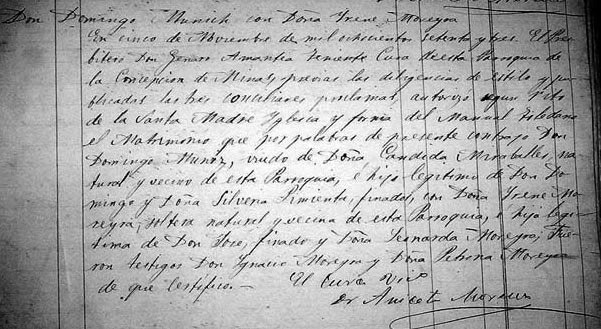 Don Domingo Munich con Doña Irene Moreyra
En cinco de Noviembre de mil ochocientos setenta y tres. El Pres
bitero Don Genaro Amantia Teniente Cura de esta Parroquia de
la Concepcion de Minas, previas las diligencias de Estilo y pu
blicadas las tres conciliares proclamas, autorizo segun Rito
de la Santa Madre Yglesia y forma del Manual Toledano
el Matrimonio que por palabras de presente contrajo Don
Domingo Muñoz, viudo de Doña Candida Miraballes, na
tural y vecino de esta Parroquia, e hijo legitimo de Don Do
mingo y Doña Silveria Pimienta, finados, con Doña Irene Mo
reyra, soltera natural y vecina de esta Parroquia, e hija legi
tima de Don Jose, finado y Doña Leonarda Moreyra; Fue
ron testigos Don Ignacio Moreyra y Doña Moreyra
de que Certifico.— El Cura Vico
Dr Anicet